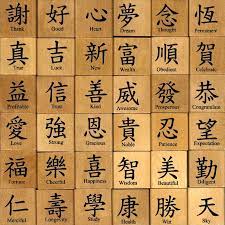 謝 好 心 夢 念 恆
Thank Good Heart Dream Permanent
真 吉 新 富 順 賀
True Luck New Wealth Obedient Celebrate
益 信 善 威 發 恭
Profitable Trust Kind Awesome Prosperous Congratulate
愛 強 恩 貴 忍 望
Love Strong Gracious Noble Patience Expectation
福 樂 喜 智 美 勤
Fortune Cheerful Happiness Wisdom Beautiful Diligent
仁 壽 學 康 勝 天
Merciful Longevity Study Health Win Sky